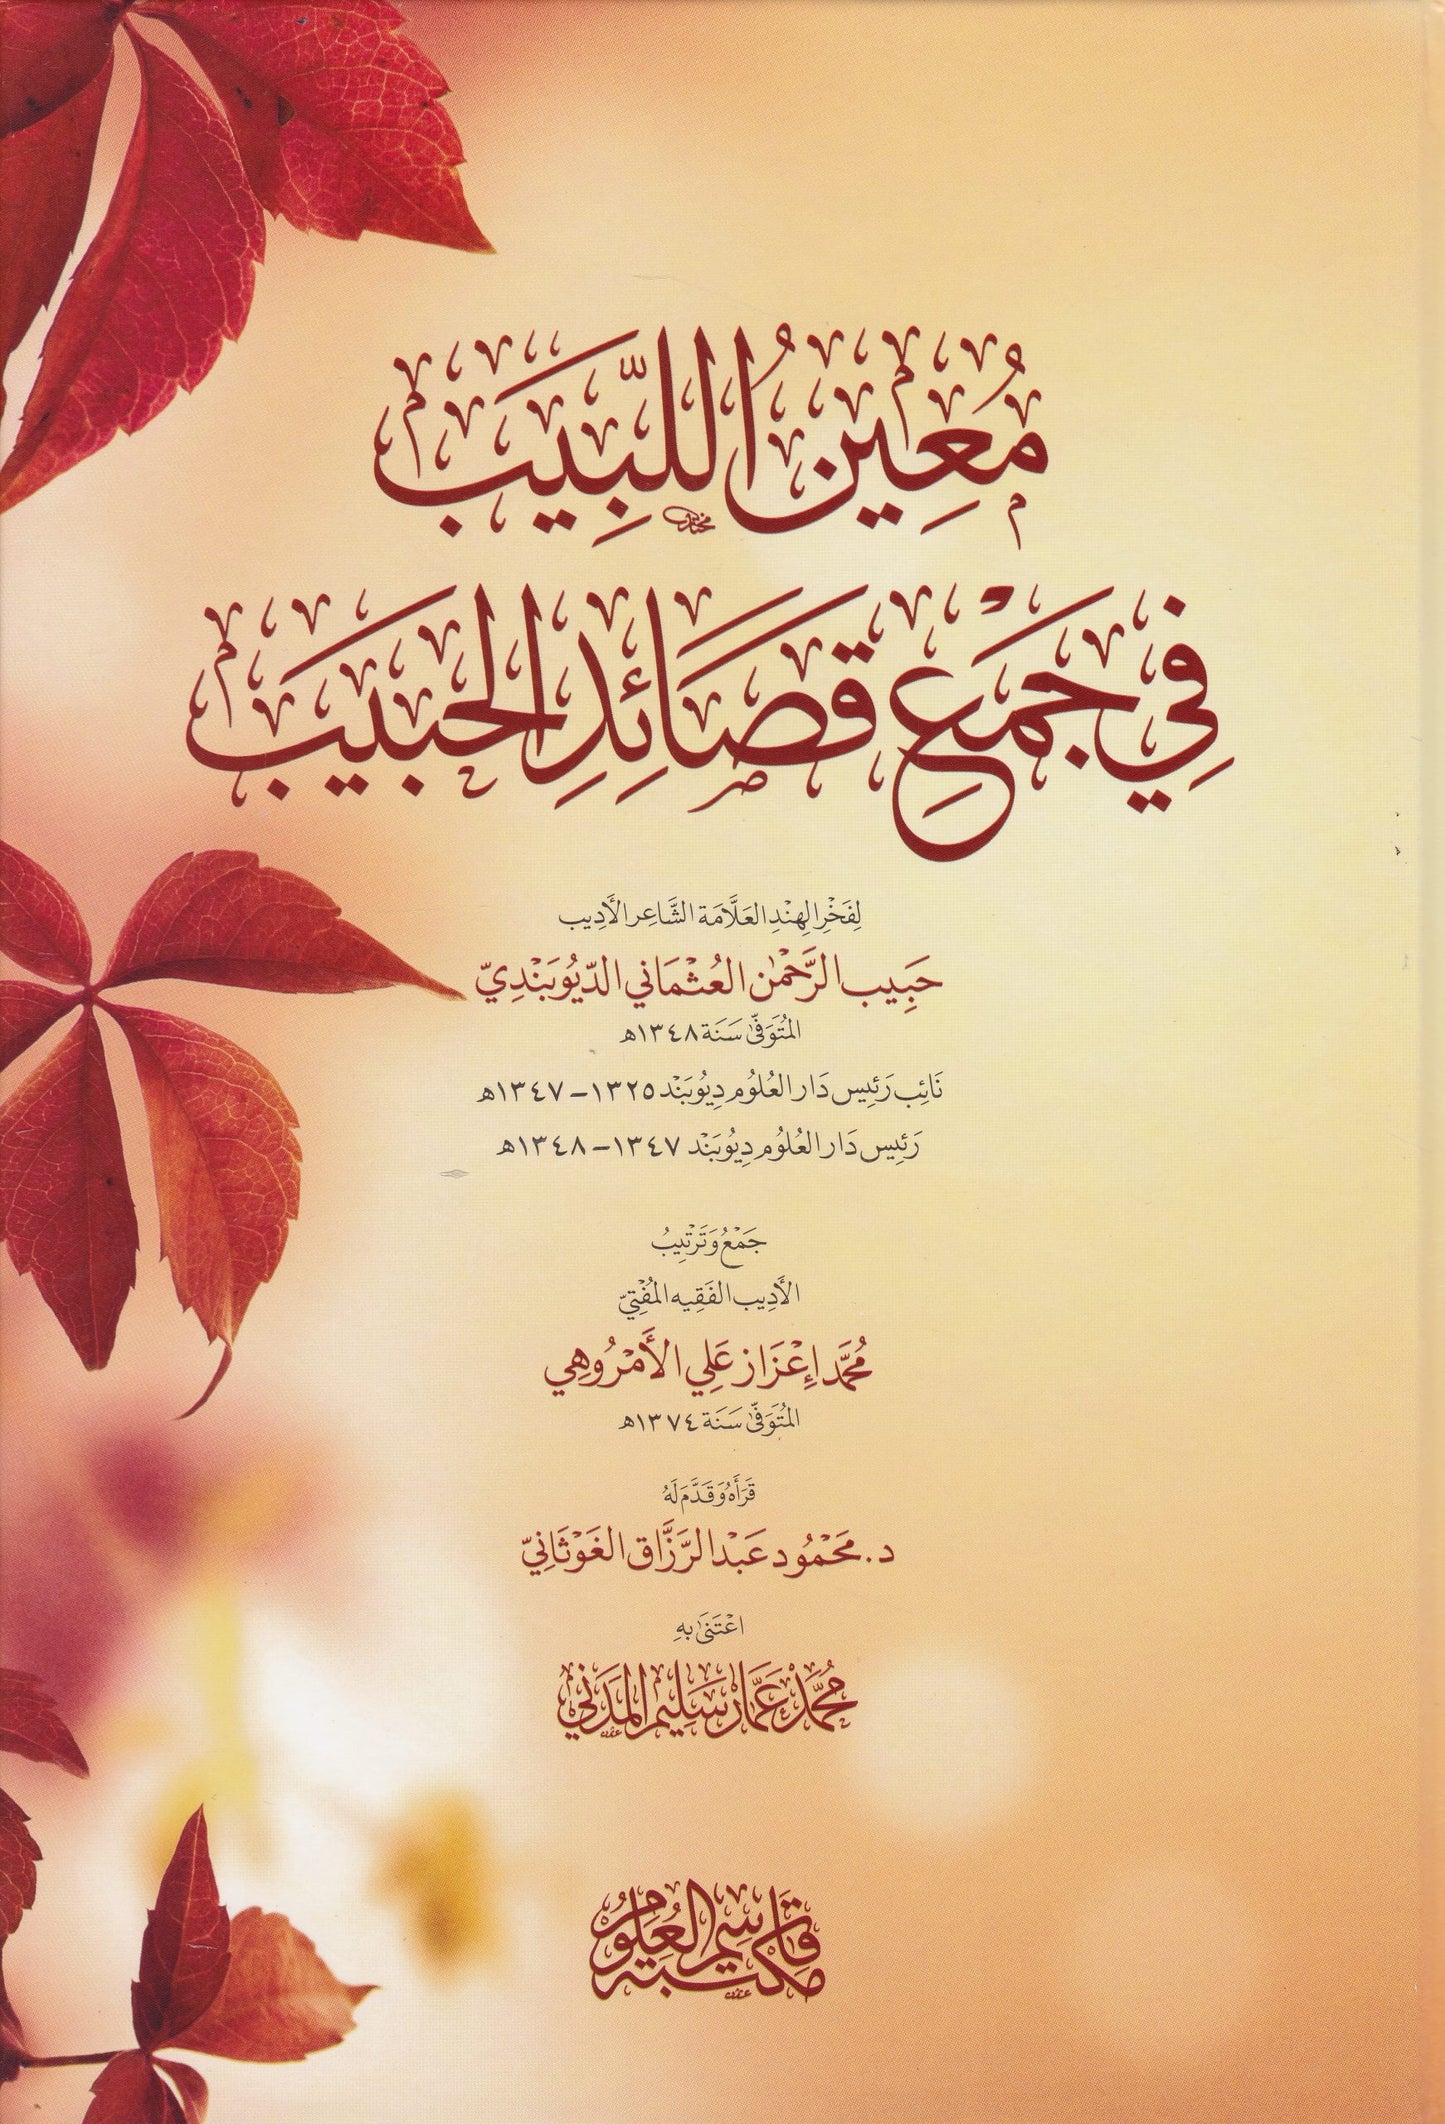 مُعِينُ اللَّبِيبِ
فِي جَمْعِ قَصَائِدِ الحَبِيبِ
لِفَخْرِ الهِنْدِ العَلَّامَة الشَّاعِر الأَدِيب
حَبِيب الرَّحْمٰن العُثْمَاني الدِّيُوبَنْدِيّ
المُتَوَفّىٰ سَنَة ١٣٤٨هـ
نَائِب رَئِيس دَار العُلُوم دِيُوبَنْد ١٣٢٥ – ١٣٤٧هـ
رَئِيس دَار العُلُوم دِيُوبَنْد ١٣٤٧ – ١٣٤٨هـ
جَمْعُ وَتَرْتِيبُ
الأَدِيب الفَقِيه المُفْتِيّ
مُحَمَّد إِعْزَاز عَلِي الأَمْرُوهِي
المُتَوَفّىٰ سَنَة ١٣٧٤هـ
قَرَأَهُ وَقَدَّمَ لَهُ
د. مَحْمُود عَبْد الرَّزَّاق الغَوْثَانِيّ
اعْتَنَىٰ بِهِ
مُحَمَّد عَمَّار سَلِيم المَدَنِي
مكتبة قاسم العلوم